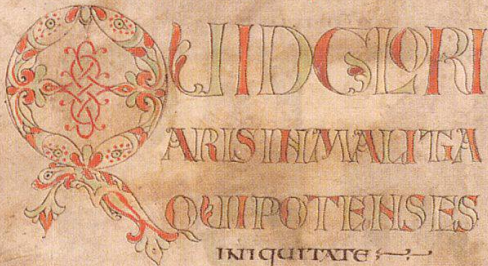 QUIDGLORI
ARISINMALITIA
QUIPOTENSES
INIQUITATE